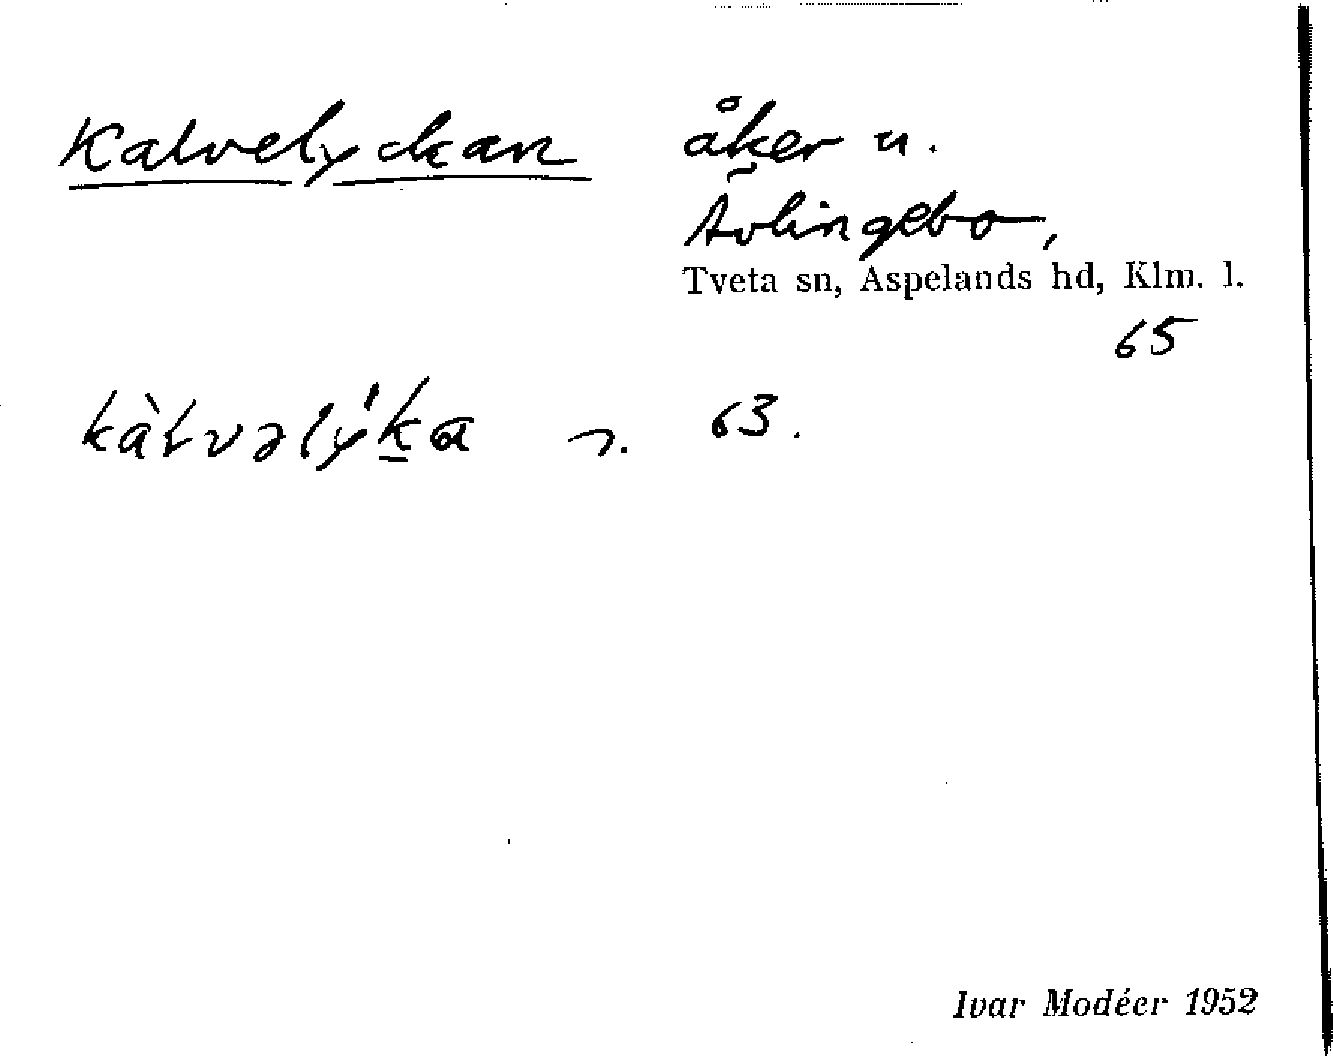 Kalvelyckan åker u.
Ävlingebo,
Tveta sn, Aspelands hd, Klm. l.
65
kàlvəlý'ka n. 63.
Ivar Modéer 1952